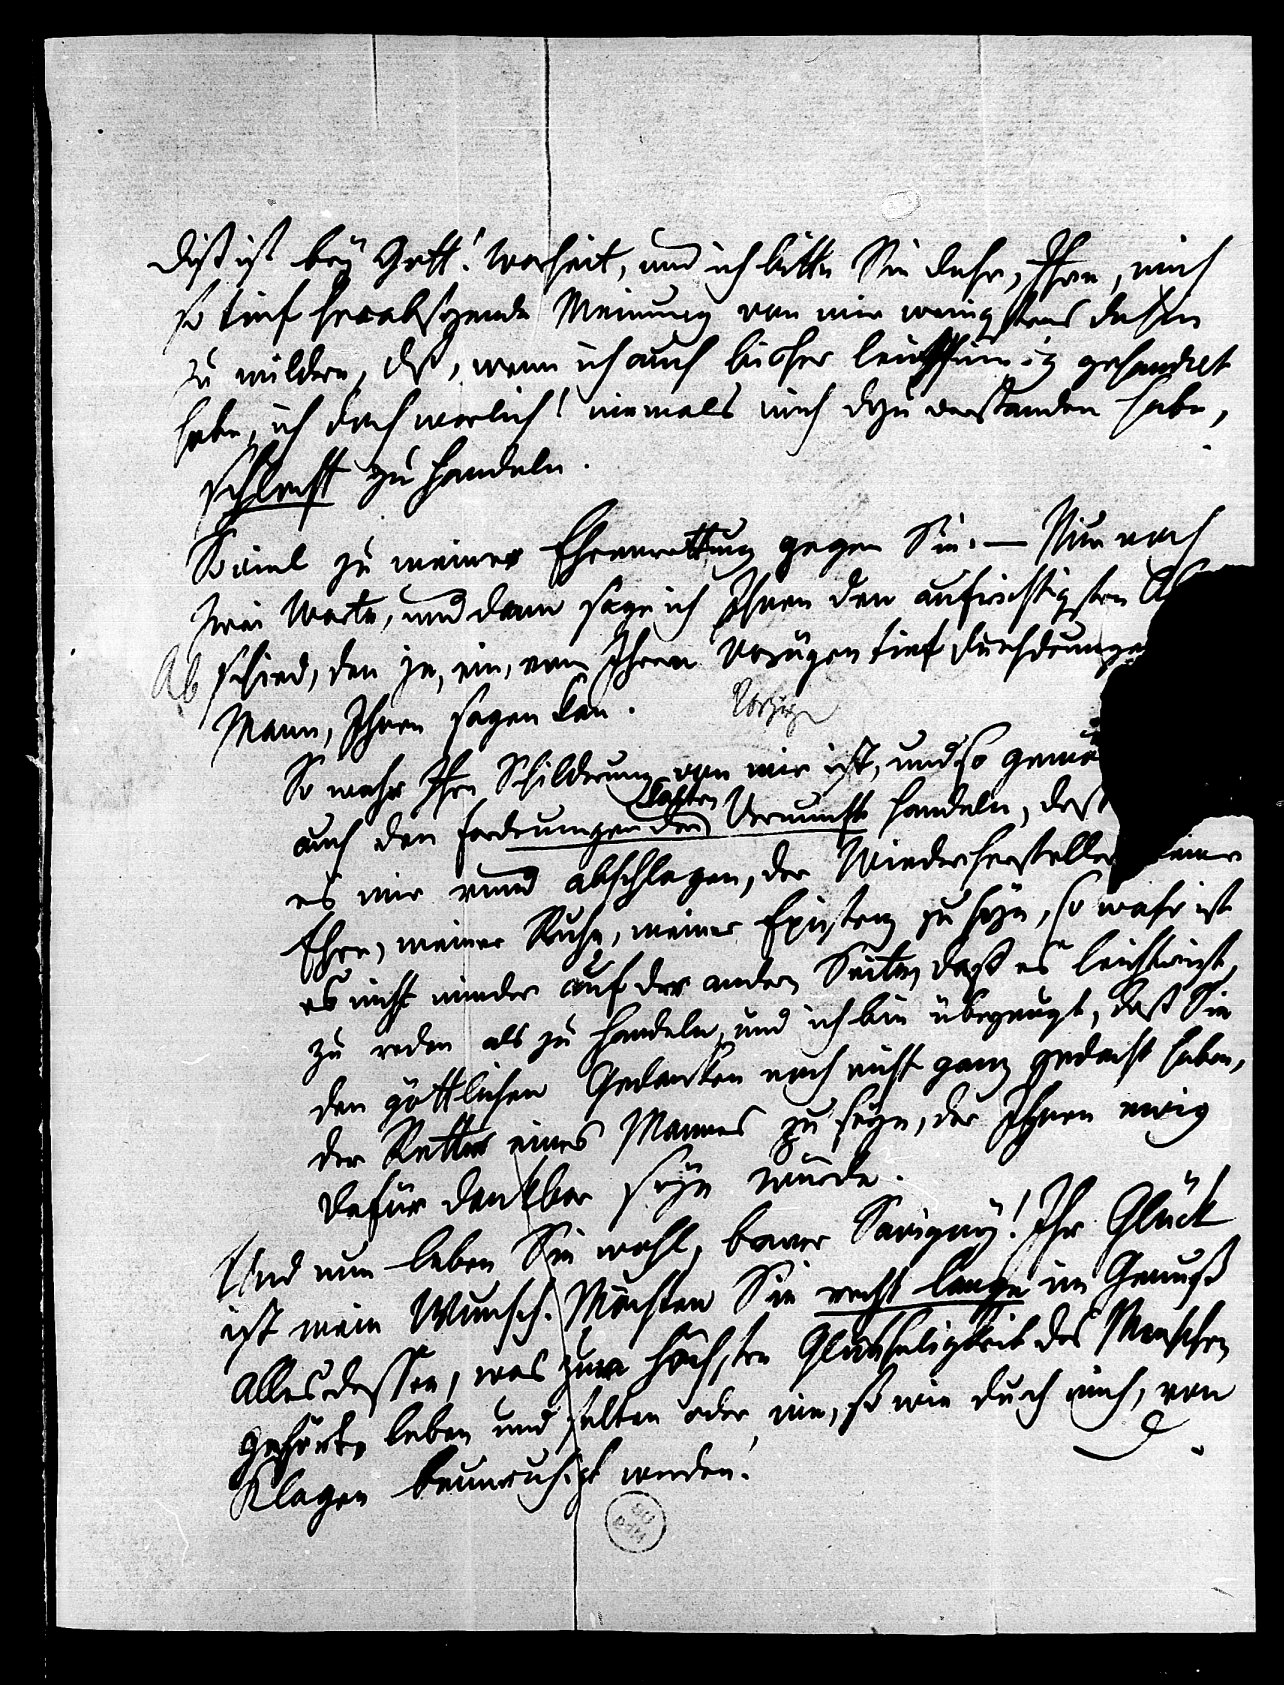 Diß ist beÿ Gott! Warheit, und ich bitte Sie daher, Ihre, mich
so tief herabsezende Meinung von mir wenigstens dahin
zu mildern, daß, wenn ich auch bisher leichtsinnig gehandelt
habe, ich doch warlich! niemals mich dazu verstanden habe,
schlecht zu handeln.
Soviel zu meiner Ehrenrettung gegen Sie. — Nur noch
zwei Worte, und dann sage ich Ihnen den aufrichtigsten A
Ab schied, den je, ein, von Ihren Vorzügen tief durchdrunge
Vorzüge
Mann, Ihnen sagen kan.
So wahr Ihre Schilderung von mir ist, und so gemä
kalten
auch den Forderungen der Vernunft handeln, daß
es mir rund abschlagen, der Wiederhersteller meiner
Ehre, meiner Ruhe, meiner Existenz zu seÿn, so wahr ist
es nicht minder auf der andern Seite, daß es leichter ist,
zu reden als zu handeln, und ich bin überzeugt, daß Sie
den göttlichen Gedanken noch nicht ganz gedacht haben,
der Retter eines Mannes zu seÿn, der Ihnen ewig
dafür dankbar seÿn würde.
Und nun leben Sie wohl, braver Savignÿ! Ihr Glück
ist mein Wunsch. Möchten Sie recht lange im Genuß
alles dessen, was zur höchsten Glückseligkeit des Menschen
gehört, leben und selten oder nie, so wie durch mich, von
Klagen beunruhigt werden.